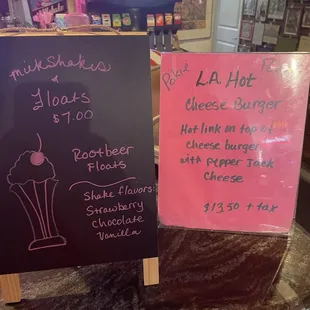 milkshakes
&
Floats
$7.00
Rootbeer
Floats
Shake flavors:
Strawberry
Chocolate
Vanilla
L.A. Hot
Cheese Burger
Hot link on top of
cheese burger
with Pepper Jack
Cheese
$13.50 + tax